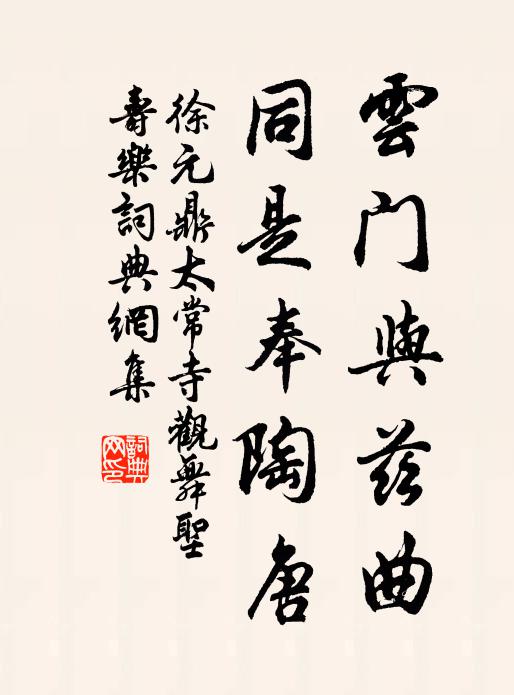 雲门與茲曲
同是奉陶唐
徐元鼎太常寺觀舞聖
壽樂詞典網集
詞典网印